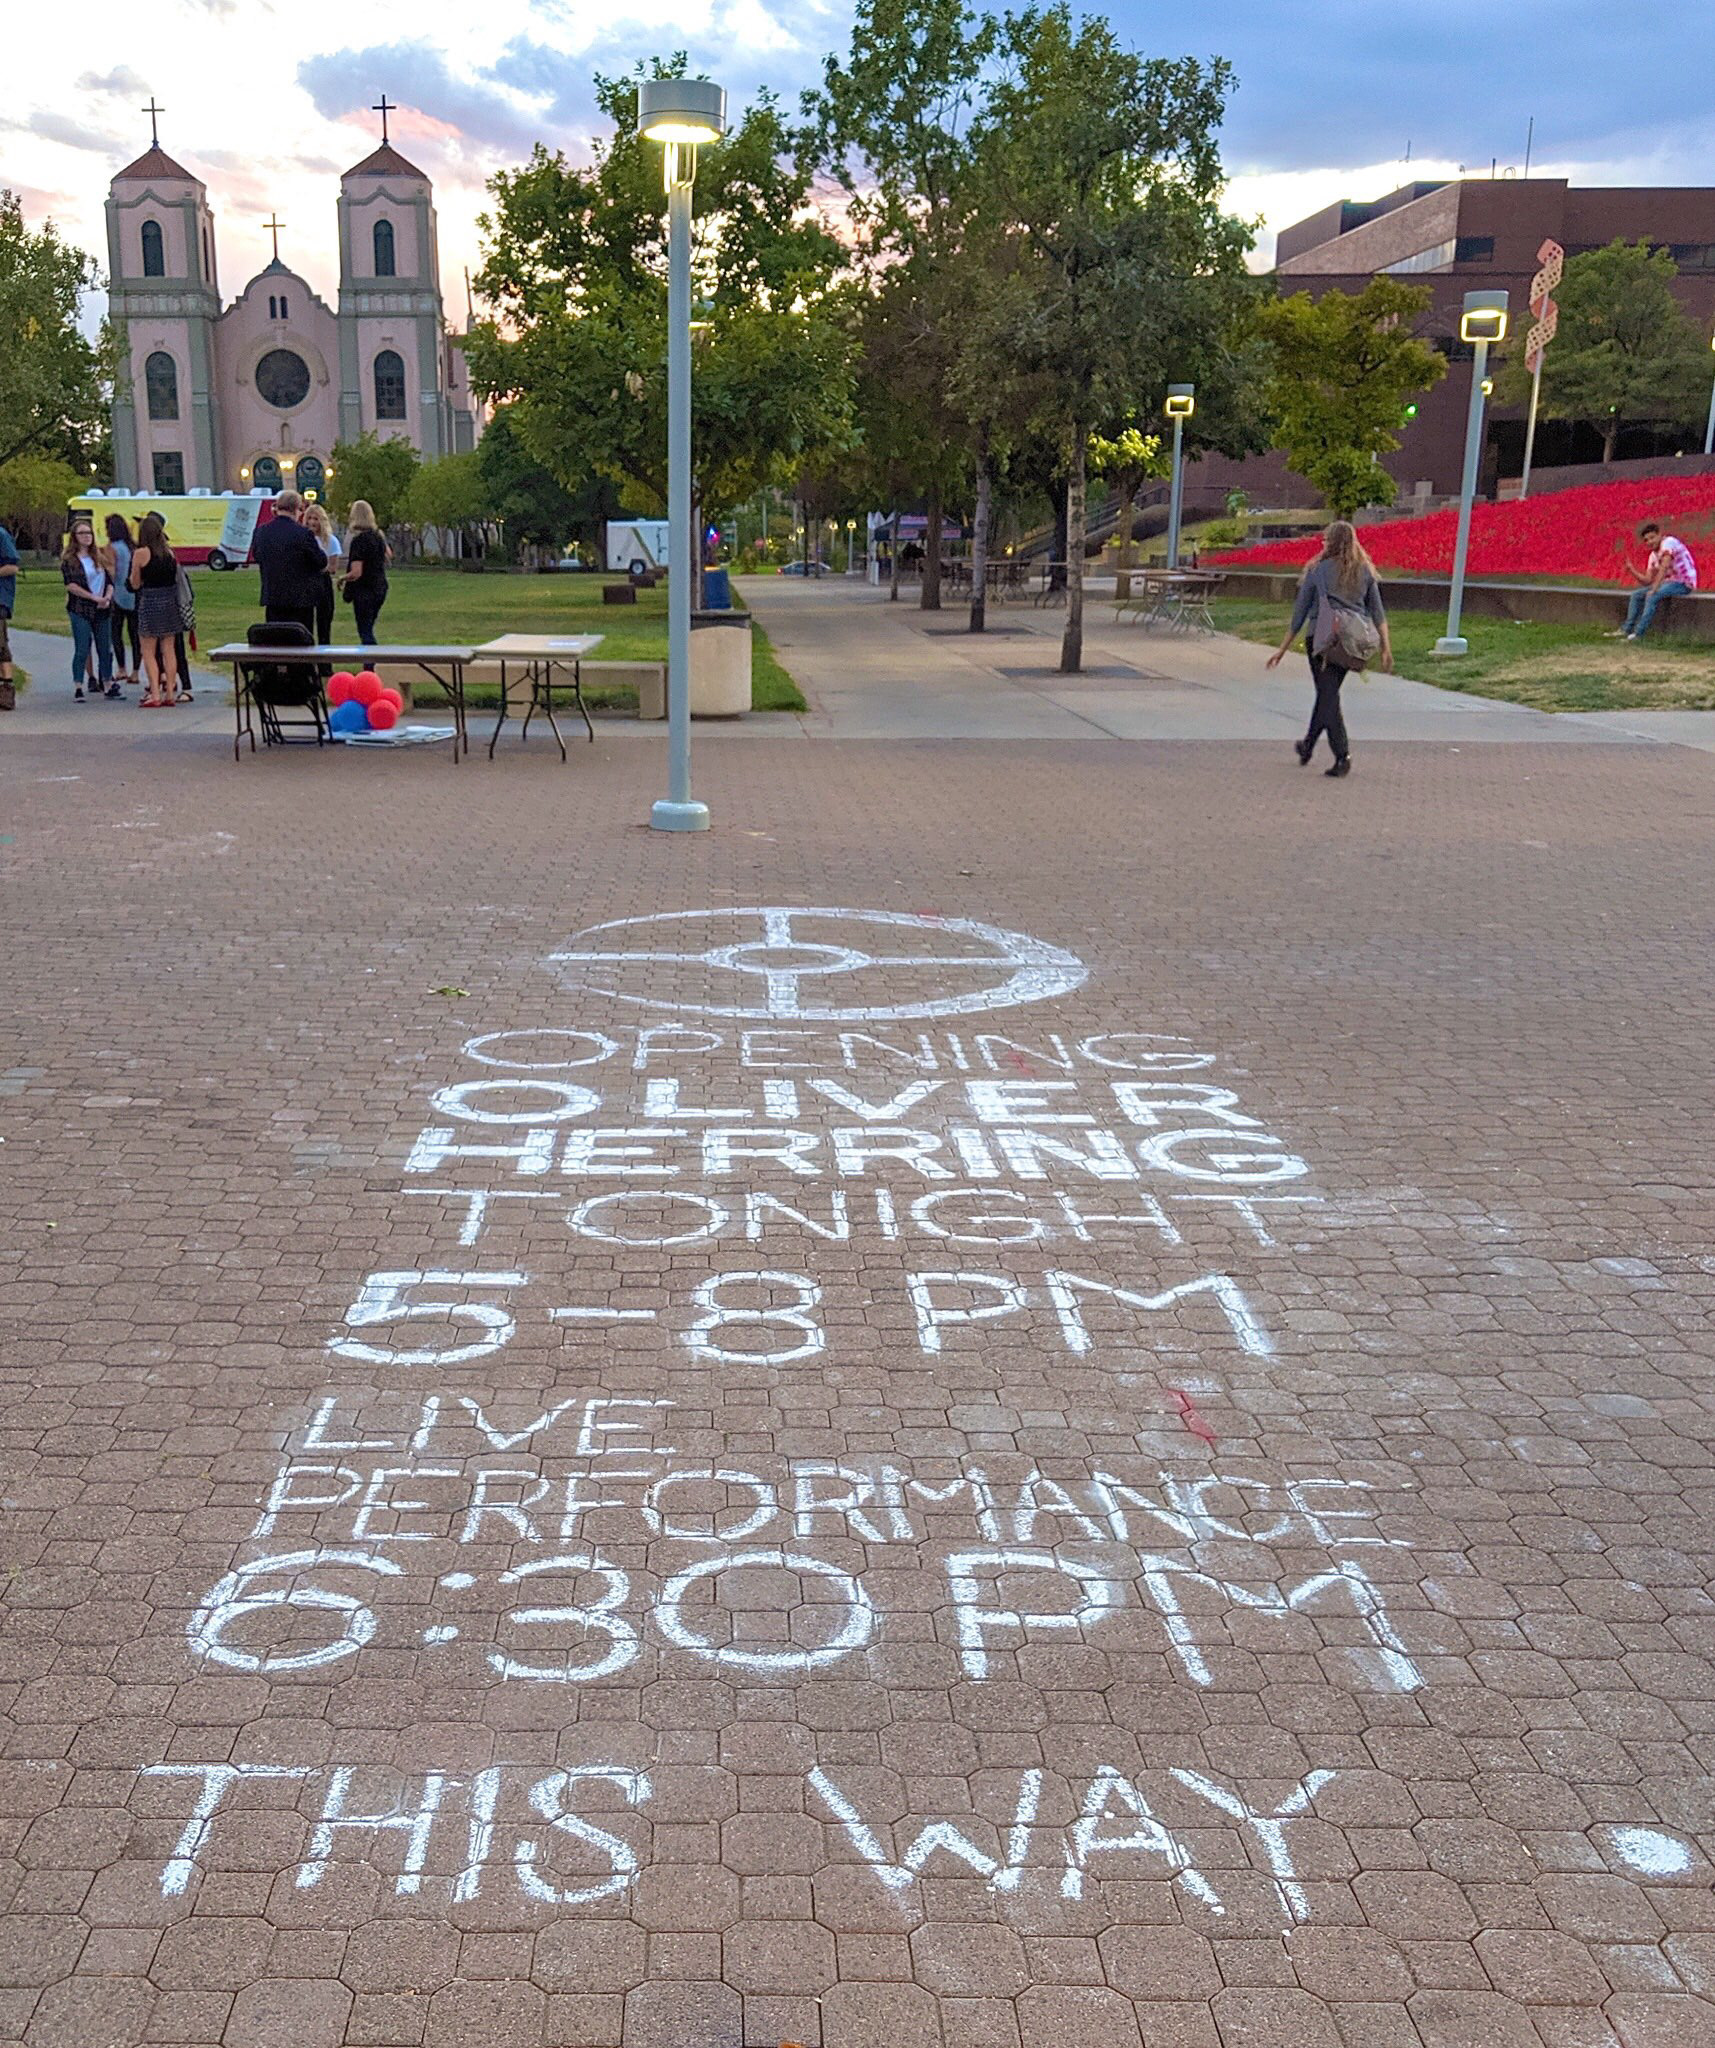 OPENING
OLIVER
HERRING
TONIGHT
5-8 PM
LIVE
PERFORMANCE
6:30 PM
THIS WAY